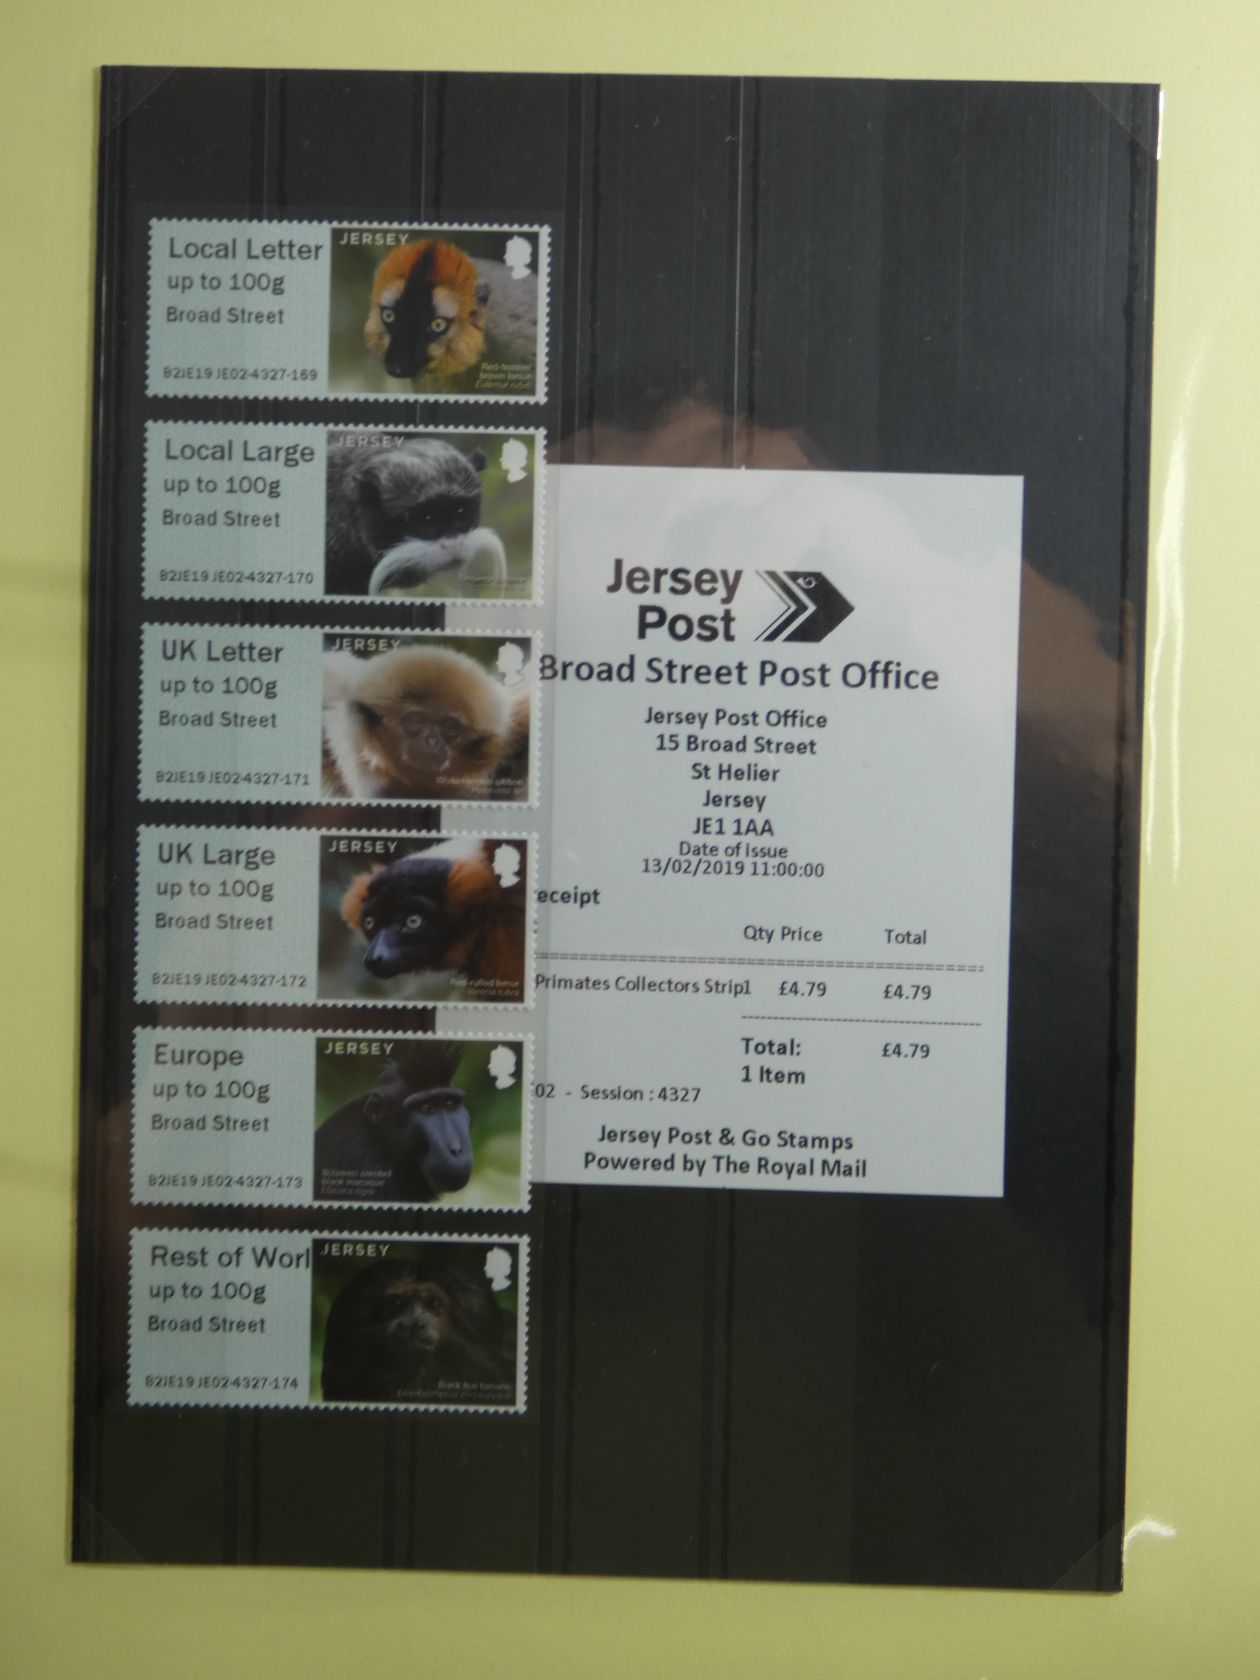 Local Letter
up to 100g
Broad Street
B2JE19 JE02-4327-169
JERSEY
Red-fronted
brown lemur
Eulemur rufus
Local Large
up to 100g
Broad Street
B2JE19 JE02-4327-170
JERSEY
UK Letter
up to 100g
Broad Street
B2JE19 JE02-4327-171
JERSEY
White-handed gibbon
Hylobates lar
UK Large
up to 100g
Broad Street
B2JE19 JE02-4327-172
JERSEY
Red-ruffed lemur
Varecia rubra
Europe
up to 100g
Broad Street
B2JE19 JE02-4327-173
JERSEY
Sulawesi crested
black macaque
Macaca nigra
Rest of Worl
up to 100g
Broad Street
B2JE19 JE02-4327-174
JERSEY
Black lion tamarin
Leontopithecus chrysopygus
Jersey
Post
Broad Street Post Office
Jersey Post Office
15 Broad Street
St Helier
Jersey
JE1 1AA
Date of issue
13/02/2019 11:00:00
eceipt
Qty Price Total
Primates Collectors Strip1 £4.79 £4.79
Total: £4.79
1 Item
02 - Session : 4327
Jersey Post & Go Stamps
Powered by The Royal Mail